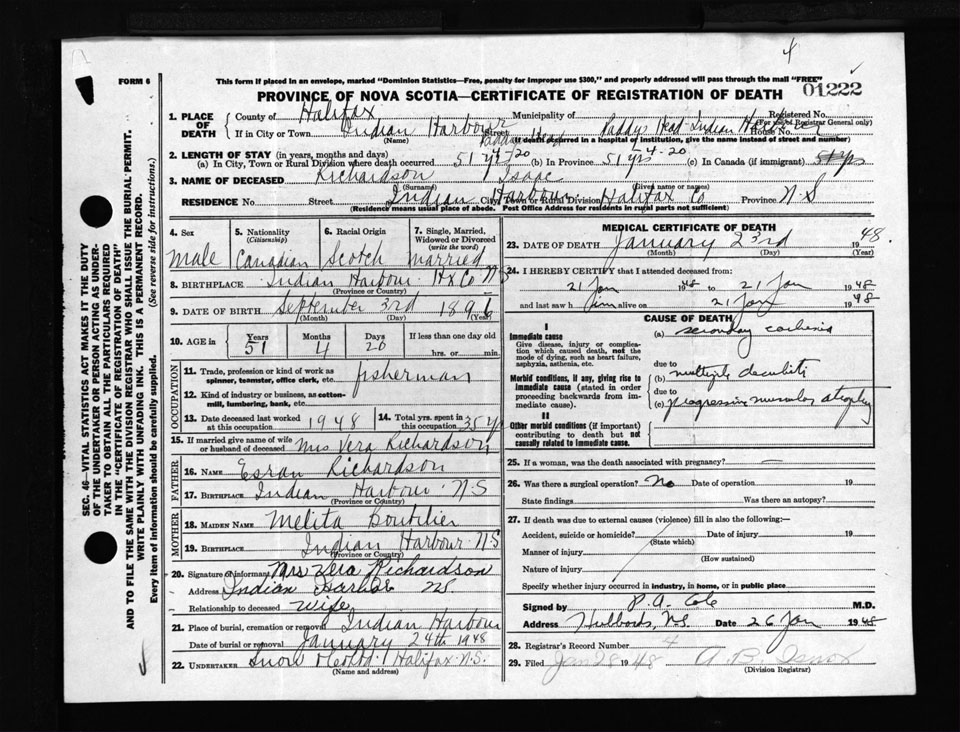 4
FORM 6
This form if placed in an envelope, marked "Dominion Statistics—Free, penalty for improper use $300," and properly addressed will pass through the mail "FREE"
01222
PROVINCE OF NOVA SCOTIA—CERTIFICATE OF REGISTRATION OF DEATH
1. PLACE OF DEATH
County of Halifax
Municipality of
Registered No.
(For use of Registrar General only)
If in City or Town Indian Harbour
Street Paddys Head Indian Harbour House No.
(Name)
(If death occurred in a hospital or institution, give name instead of street and number)
2. LENGTH OF STAY (in years, months and days)
(a) In City, Town or Rural Division where death occurred 51 yrs 4-20 (b) In Province 51 yrs 4-20 (c) In Canada (if immigrant) 51 yrs
3. NAME OF DECEASED Richardson Isaac
(Surname) (Given name or names)
RESIDENCE No. Street. Indian Harbour City, Town or Rural Division Halifax Co Province N S
(Residence means usual place of abode. Post Office Address for residents in rural parts not sufficient)
4. Sex
Male
5. Nationality
(Citizenship)
Canadian
6. Racial Origin
Scotch
7. Single, Married, Widowed or Divorced
(write the word)
Married
8. BIRTHPLACE Indian Harbour Hx Co N S
(Province or Country)
9. DATE OF BIRTH September 3rd 1896
(Month) (Day) (Year)
10. AGE in
Years Months Days If less than one day old
51 4 20 hrs. or min.
OCCUPATION
11. Trade, profession or kind of work as spinner, teamster, office clerk, etc. fisherman
12. Kind of industry or business, as cotton-mill, lumbering, bank, etc.
13. Date deceased last worked at this occupation 1948
14. Total yrs. spent in this occupation 35 y
15. If married give name of wife or husband of deceased Mrs Vera Richardson
FATHER
16. NAME Esran Richardson
17. BIRTHPLACE Indian Harbour N.S
(Province or Country)
MOTHER
18. MAIDEN NAME Melita Boutilier
19. BIRTHPLACE Indian Harbour N S
(Province or Country)
20. Signature of informant Mrs Vera Richardson
Address Indian Harbour NS.
Relationship to deceased Wife
21. Place of burial, cremation or removal Indian Harbour
Date of burial or removal January 24th 1948
22. UNDERTAKER Snow Halifax N.S.
(Name and address)
MEDICAL CERTIFICATE OF DEATH
23. DATE OF DEATH January 23rd 1948.
(Month) (Day) (Year)
24. I HEREBY CERTIFY that I attended deceased from:
21 Jan 1948 to 21 Jan 1948
and last saw him alive on 21 Jan 1948
CAUSE OF DEATH
I
Immediate cause
Give disease, injury or complication which caused death, not the mode of dying, such as heart failure, asphyxia, asthenia, etc.
(a) secondary cachexia
due to
Morbid conditions, if any, giving rise to immediate cause (stated in order proceeding backwards from immediate cause).
(b) multiple decubiti
due to
(c) progressive muscular atrophy
II
Other morbid conditions (if important) contributing to death but not causally related to immediate cause.
25. If a woman, was the death associated with pregnancy? —
26. Was there a surgical operation? No Date of operation 19
State findings Was there an autopsy?
27. If death was due to external causes (violence) fill in also the following:—
Accident, suicide or homicide? Date of injury 19
(State which)
Manner of injury
(How sustained)
Nature of injury
Specify whether injury occurred in industry, in home, or in public place
Signed by P. A. Cole M.D.
Address Hubbards, N.S. Date 26 Jan 1948
28. Registrar's Record Number 4
29. Filed Jan 28 1948 A. B.
(Division Registrar)
SEC. 46—VITAL STATISTICS ACT MAKES IT THE DUTY
OF THE UNDERTAKER OR PERSON ACTING AS UNDERTAKER TO OBTAIN ALL THE PARTICULARS REQUIRED
IN THE "CERTIFICATE OF REGISTRATION OF DEATH"
AND TO FILE THE SAME WITH THE DIVISION REGISTRAR WHO SHALL ISSUE THE BURIAL PERMIT.
WRITE PLAINLY WITH UNFADING INK. THIS IS A PERMANENT RECORD.
Every item of information should be carefully supplied. (See reverse side for instructions.)